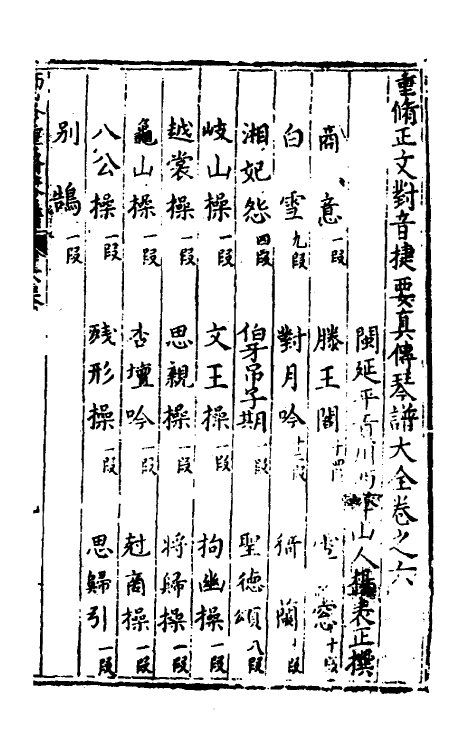 重脩正文對音捷要真傳琴譜大全卷之六
閩延平 山人 表正撰
商意一段 滕王閣 十段
白雪九段 對月吟十二段 蘭 段
湘妃怨四段 伯牙吊子期 段 聖德頌八段
岐山操一段 文王操一段 拘幽操一段
越裳操一段 思親操一段 將歸操一段
龜山操一段 杏壇吟一段 尅商操一段
八公操一段 残形操一段 思歸引一段
别鵠一段